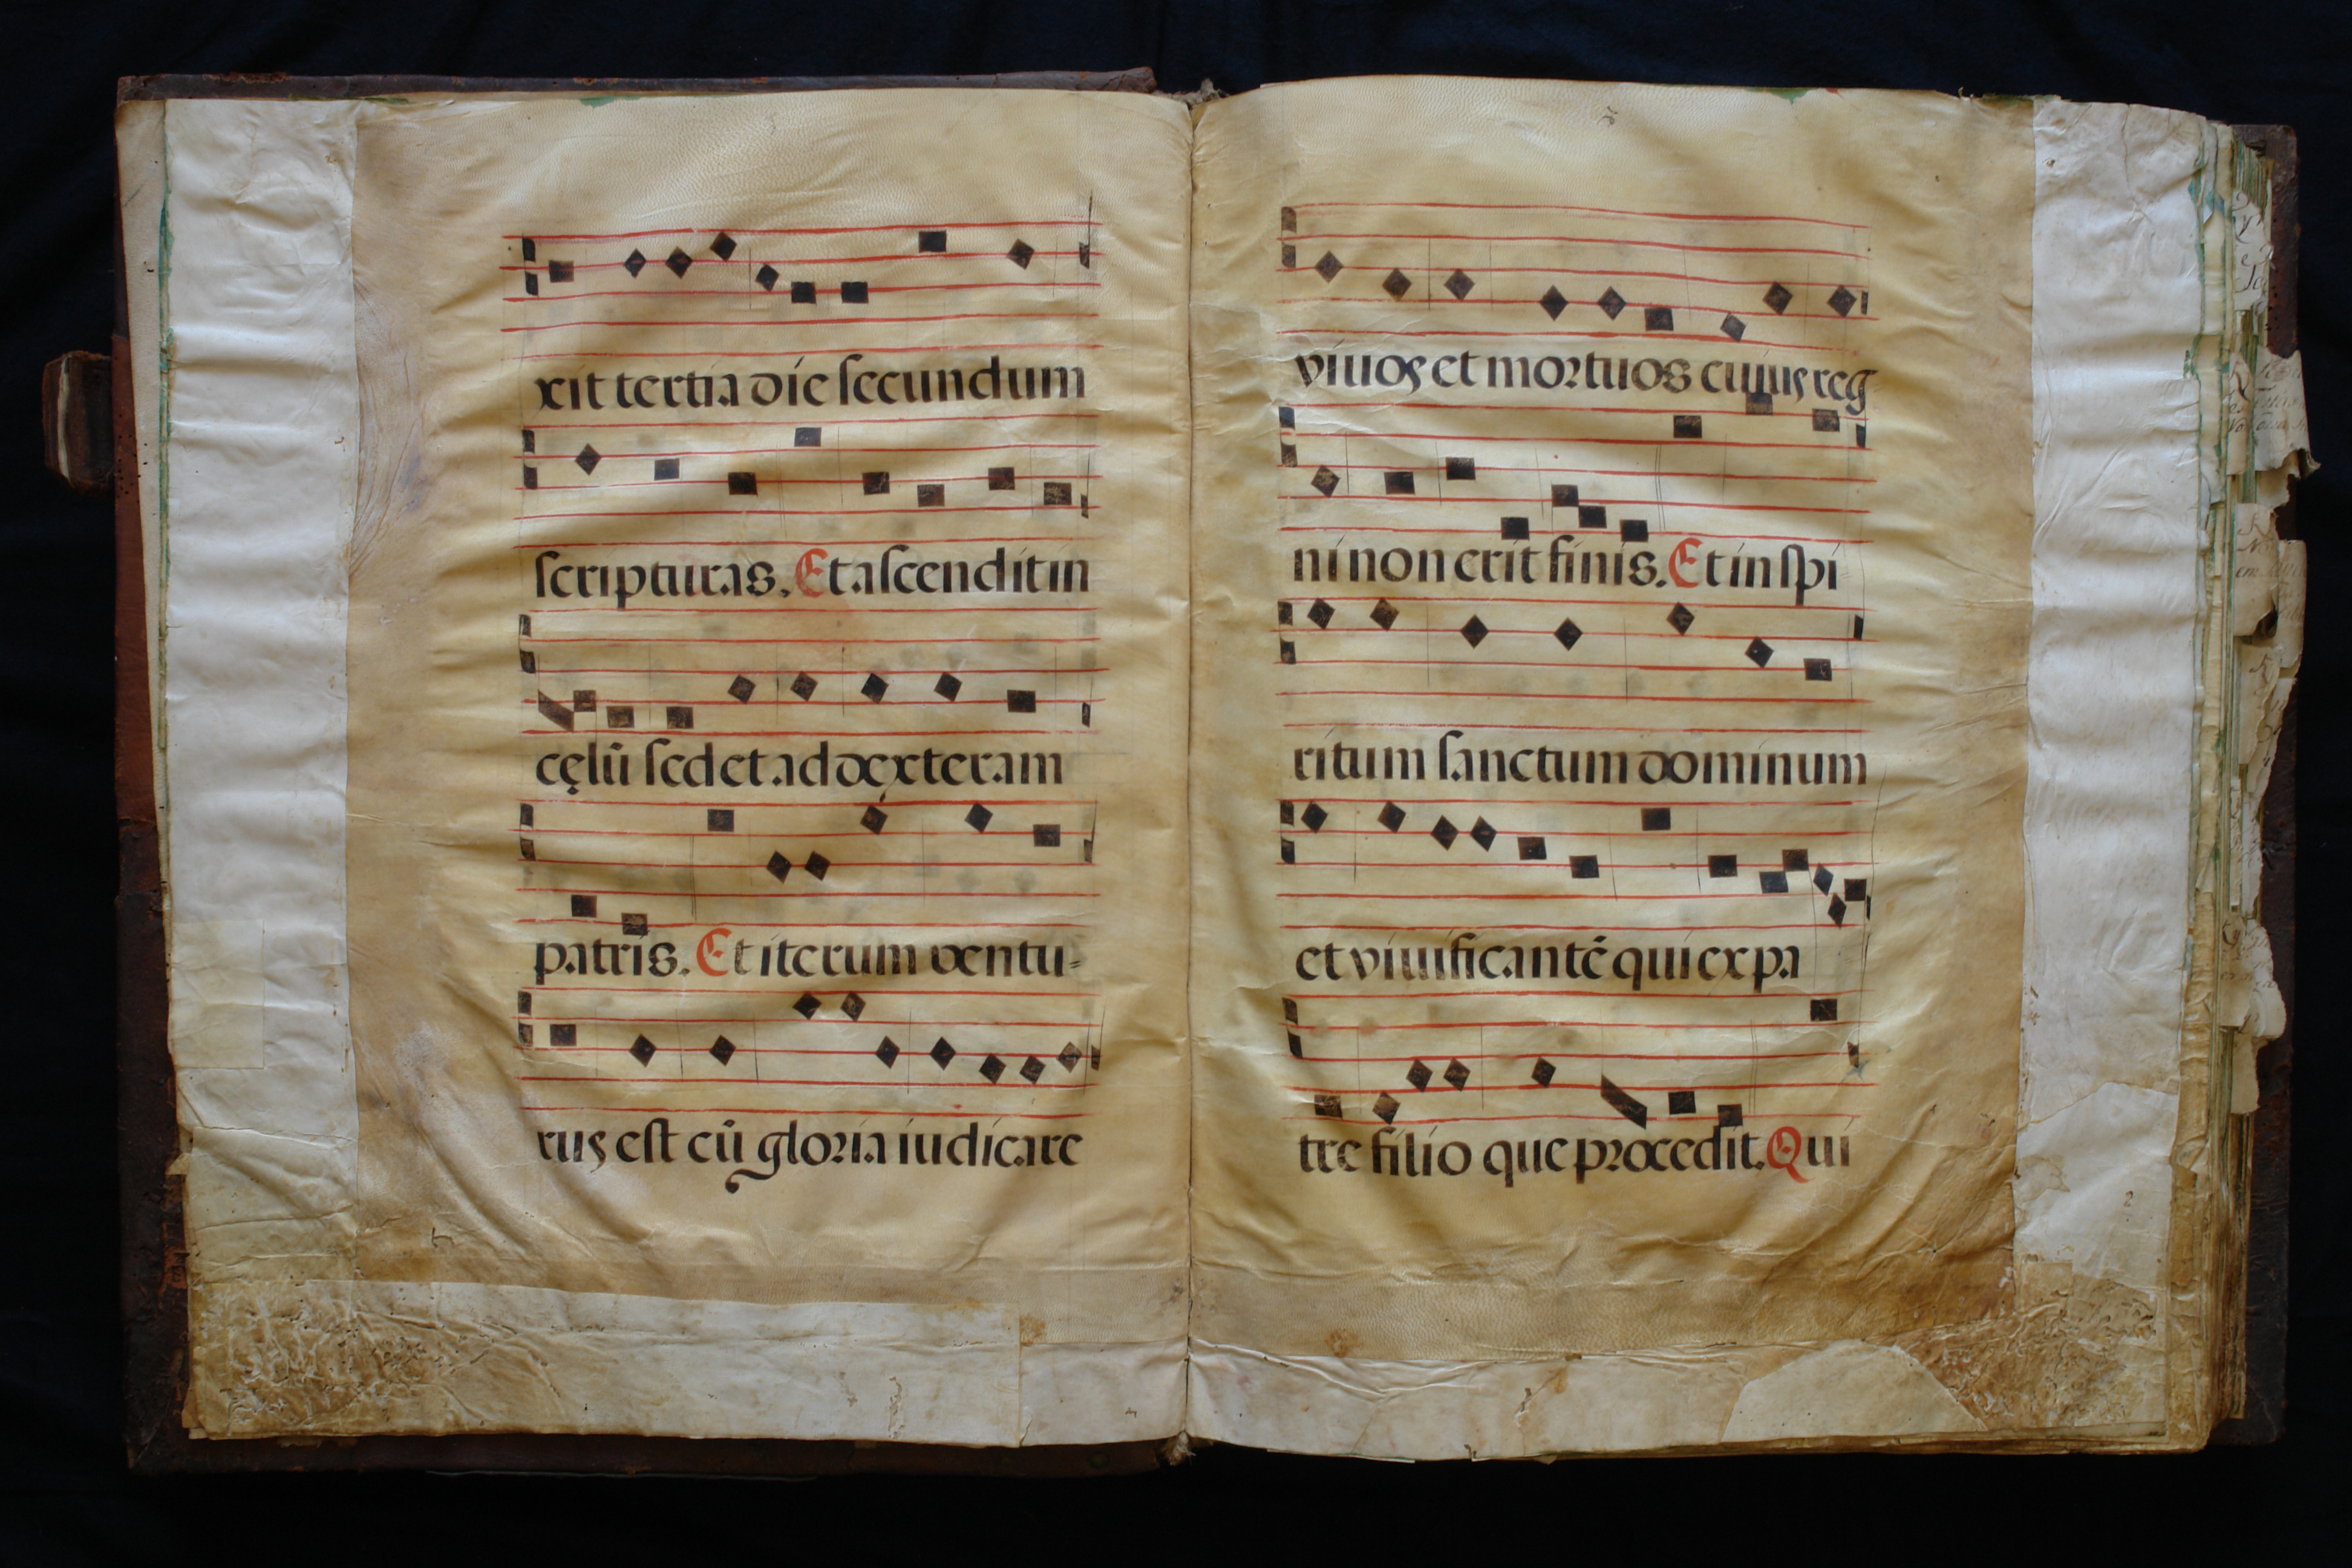 xit tertia die ſecundum
ſcripturas. Et aſcendit in
cęlū ſedet ad dexteram
patris. Et iterum ventu-
rus eſt cū gloria iudicare
viuos et mortuos cuius reg
ni non erit finis. Et in ſpi
ritum ſanctum dominum
et viuificantē qui ex pa
tre filio que procedit. Qui